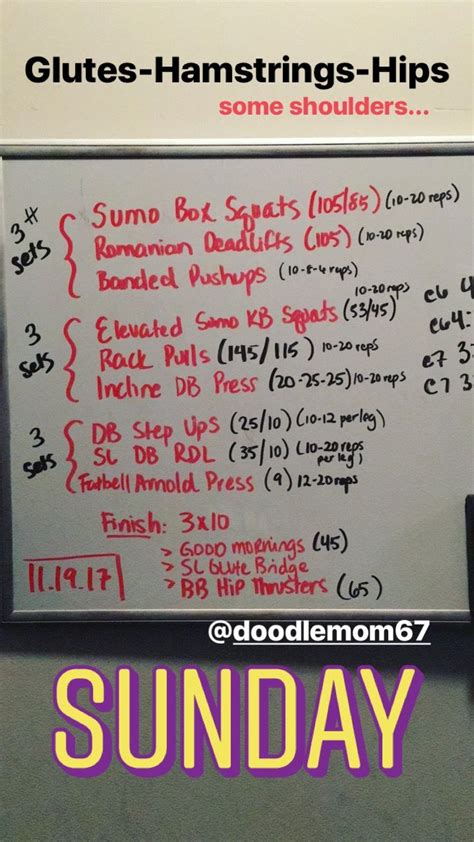 Glutes-Hamstrings-Hips
some shoulders...
3# sets
Sumo Box Squats (105/85) (10-20 reps)
Romanian Deadlifts (105) (10-20 reps)
Banded Pushups (10-8-6 reps)
3 sets
Elevated Sumo KB Squats (53/45) 10-20 reps
Rack Pulls (145/115) 10-20 reps
Incline DB Press (20-25-25) 10-20 reps
3 sets
DB Step Ups (25/10) (10-12 per leg)
SL DB RDL (35/10) (10-20 reps per leg)
Fatbell Arnold Press (9) 12-20 reps
Finish: 3x10
> Good mornings (45)
> SL Glute Bridge
> BB Hip Thrusters (65)
11.19.17
@doodlemom67
SUNDAY